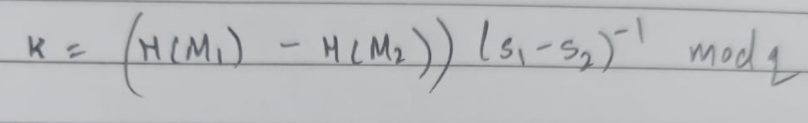 K = (H(M₁) - H(M₂)) (s₁-s₂)⁻¹ mod q